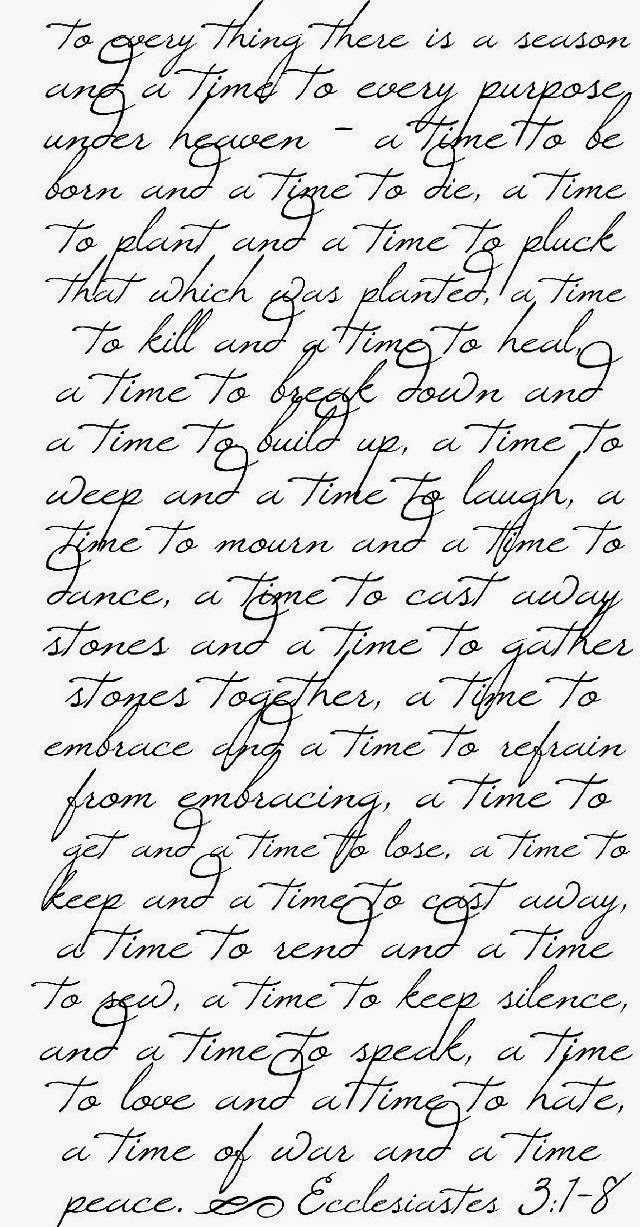 to every thing there is a season
and a time to every purpose
under heaven - a time to be
born and a time to die, a time
to plant and a time to pluck
that which was planted, a time
to kill and a time to heal,
a time to break down and
a time to build up, a time to
weep and a time to laugh, a
time to mourn and a time to
dance, a time to cast away
stones and a time to gather
stones together, a time to
embrace and a time to refrain
from embracing, a time to
get and a time to lose, a time to
keep and a time to cast away,
a time to rend and a time
to sew, a time to keep silence,
and a time to speak, a time
to love and a time to hate,
a time of war and a time
peace. Ecclesiastes 3:1-8